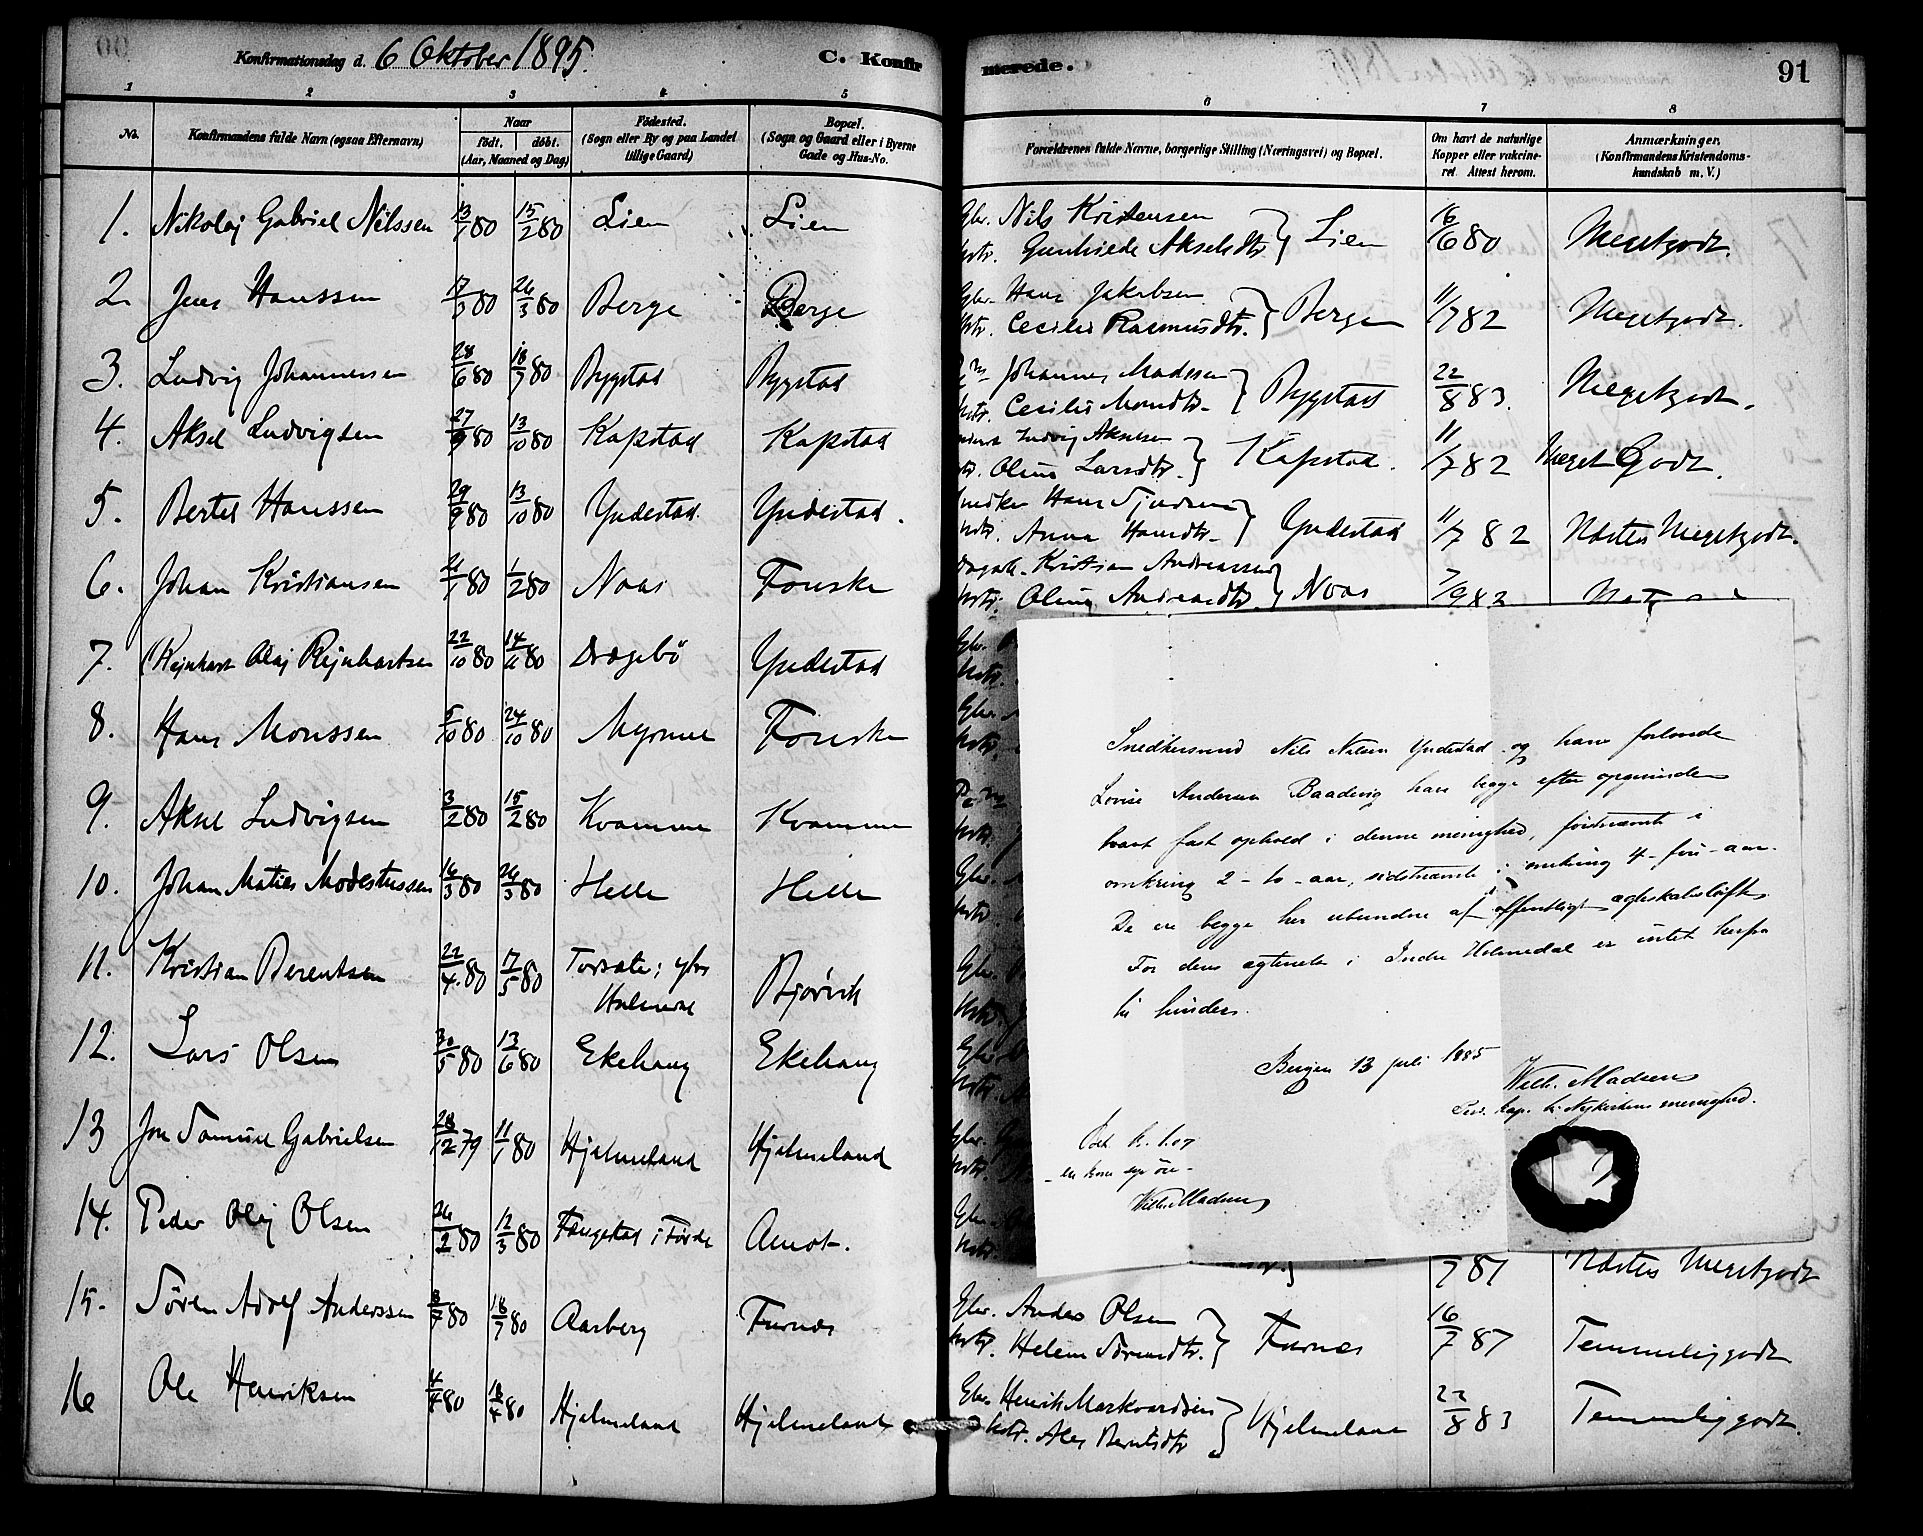 Konfirmationsdag d. 6 Oktober 1895.
C. Konfirmerede.
91
1 2 3 4 5 6 7 8
No.
Konfirmandens fulde Navn (ogsaa Efternavn)
Naar
født. døbt.
(Aar, Maaned og Dag)
Fødested.
(Sogn eller By og paa Landet
tillige Gaard)
Bopæl.
(Sogn og Gaard eller i Byerne
Gade og Hus-No.
Forældrenes fulde Navne, borgerlige Stilling (Næringsvei) og Bopæl.
Om havt de naturlige
Kopper eller vakcine-
ret. Attest herom.
Anmærkninger.
(Konfirmandens Kristendoms-
kundskab m. V.)
1. Nikolaj Gabriel Nilssen 13/1 80 15/2 80 Lien Lien Gbr. Nils Kristensen Hstr. Gunhilde Akselsdtr. Lien 16/6 80 Megetgodt.
2. Jens Hanssen 17/3 80 26/3 80 Berge Berge Gbr. Hans Jakobsen Hstr. Cecilie Rasmusdtr. Berge 11/7 82 Megetgodt.
3. Ludvig Johannessen 28/6 80 18/7 80 Bygstad Bygstad Johannes Madssen Hstr. Cecilie Monsdtr. Bygstad 22/8 83. Megetgodt.
4. Aksel Ludvigsen 27/9 80 13/10 80 Kapstad Kapstad Ludvig Akselsen Oline Larsdtr. Kapstad. 11/7 82 Meget Godt.
5. Bertel Hanssen 29/9 80 13/10 80 Yndestad Yndestad. Hans Sjurdsen Hstr. Anna Hansdtr. Yndestad 11/7 82 Næsten Megetgodt.
6. Johan Kristiansen 21/1 80 1/2 80 Naas Fonske Kristian Andreassen Hstr. Oline Andreasdtr. Naas 7/9 82
7. (Rejnhart Olaj Rejnhartsen 22/10 80 14/11 80 Drægebø Yndestad Gbr. Hstr.
8. Hans Monssen 5/10 80 24/10 80 Myrme Fonske Gbr. Hstr.
9. Aksel Ludvigsen 3/2 80 15/2 80 Kvamme Kvamme Hstr.
10. Johan Matias Modestussen 16/3 80 26/3 80 Helle Helle Gbr. Hstr.
11. Kristian Berentsen 22/4 80 17/5 80 Holmedal Bjørvik Gbr. Hstr.
12. Lars Olsen 30/5 80 13/6 80 Ekehaug Ekehaug Gbr. Hstr.
13 Jon Samuel Gabrielsen 28/12 79 11/1 80 Hjelmeland Hjelmeland Gbr. Hstr.
14. Peder Olaj Olsen 26/2 80 12/3 80 Fangestad i Førde Amot. Gbr. Hstr. 7 87 Næsten Megetgodt
15. Søren Adolf Anderssen 3/7 80 18/7 80 Aarberg Furnes Gbr. Anders Olsen Hstr. Helene Sørensdtr. Furnes 16/7 87 Temmeliggodt
16 Ole Henriksen 4/4 80 18/4 80 Hjelmeland Hjelmeland Gbr. Henrik Markvardsen Hstr. Ales Berntsdtr. Hjelmeland 22/8 83 Temmeliggodt.
Snedkersvend Nils Nilsen Yndestad og hans forlovede
Lovise Andersen Baadevig have begge efter opgivende
havt fast ophold i denne menighed, førstnævnte i
omkring 2 - to - aar, sidstnævnte i omkring 4 - fire - aar.
De ere begge her ubundne af offentligt ægteskabsløfte.
For deres ægteskab i Indre Holmedal er intet herfra
til hinder.
Bergen 13 juli 1885
Wilh. Madsen
Res. kap. til Nykirkens menighed.
Bet. kr. 1.07
Wilh. Madsen